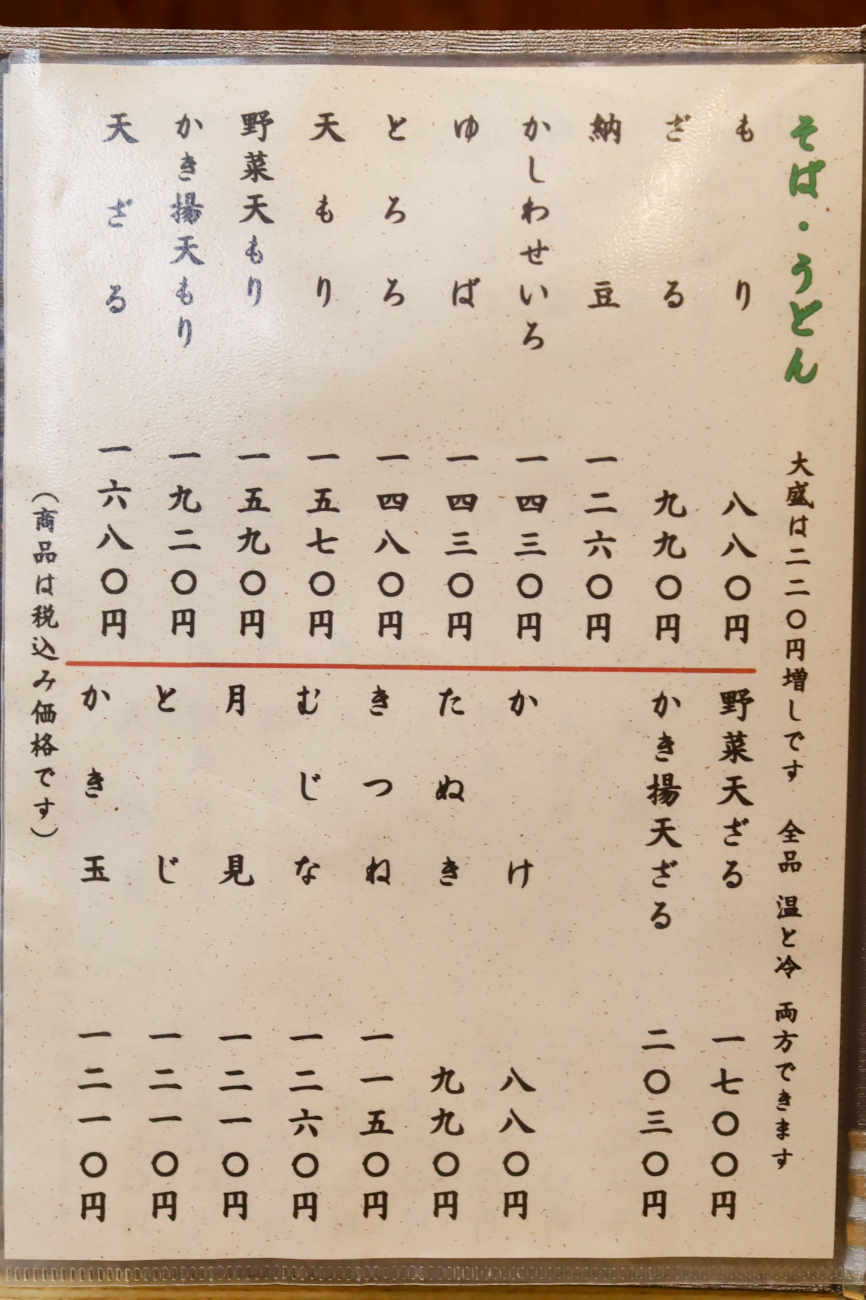 そば・うどん 大盛は二二〇円増しです 全品 温と冷 両方できます
もり 八八〇円
ざる 九九〇円
納豆 一二六〇円
かしわせいろ 一四三〇円
ゆば 一四三〇円
とろろ 一四八〇円
天もり 一五七〇円
野菜天もり 一五九〇円
かき揚天もり 一九二〇円
天ざる 一六八〇円
野菜天ざる 一七〇〇円
かき揚天ざる 二〇三〇円
かけ 八八〇円
たぬき 九九〇円
きつね 一一五〇円
むじな 一二六〇円
月見 一二一〇円
とじ 一二一〇円
かき玉 一二一〇円
(商品は税込み価格です)